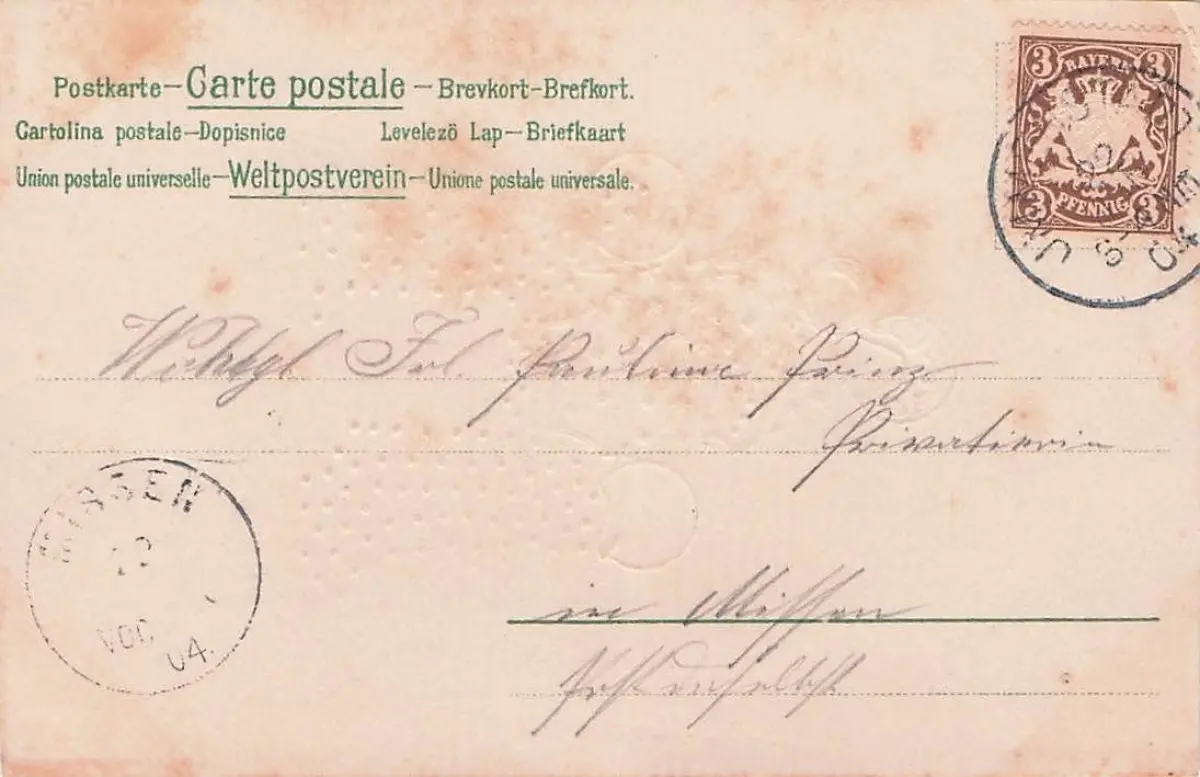 Postkarte—Carte postale—Brevkort-Brefkort.
Cartolina postale—Dopisnice Levelezö Lap—Briefkaart
Union postale universelle—Weltpostverein—Unione postale universale.
3 BAYERN 3
3 PFENNIG 3
04
Wohlgb Frl. Pauline Prinz
Privatierin
MISSEN
22
NOV
04.
in Missen
Post daselbst